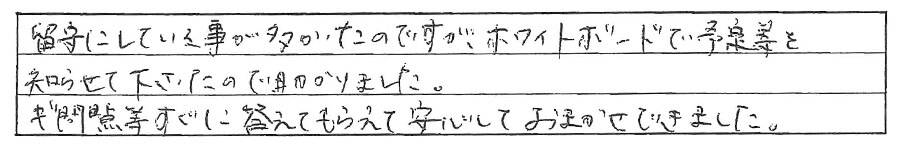 留守にしている事が多かったのですが、ホワイトボードで予定等を
知らせて下さったので助かりました。
疑問点等すぐに答えてもらえて安心しておまかせできました。